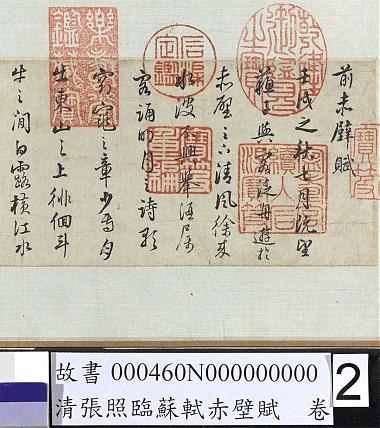 前赤壁賦
壬戌之秋七月既望
蘇子與客泛舟遊於
赤壁之下清風徐來
水波不興舉酒属
客誦明月之詩歌
窈窕之章少焉月
出東山之上徘徊斗
牛之間白露橫江水
故書 000460N000000000
清張照臨蘇軾赤壁賦 卷
2